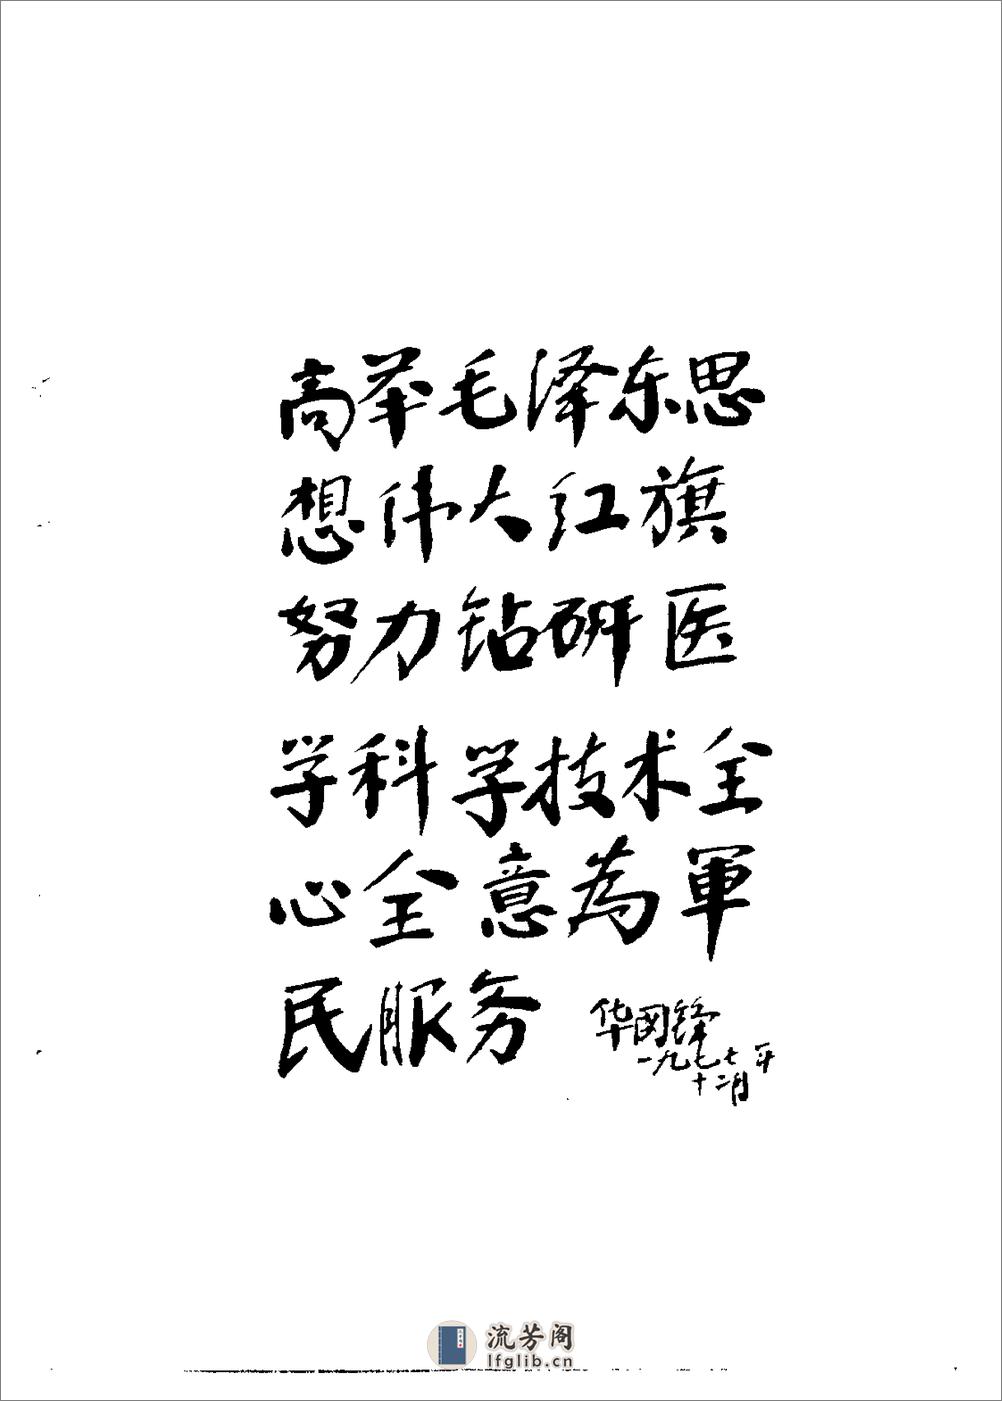 高举毛泽东思
想伟大红旗
努力钻研医
学科学技术全
心全意為軍
民服务
华国锋
一九七七年
十二月
流芳阁
lfglib.cn